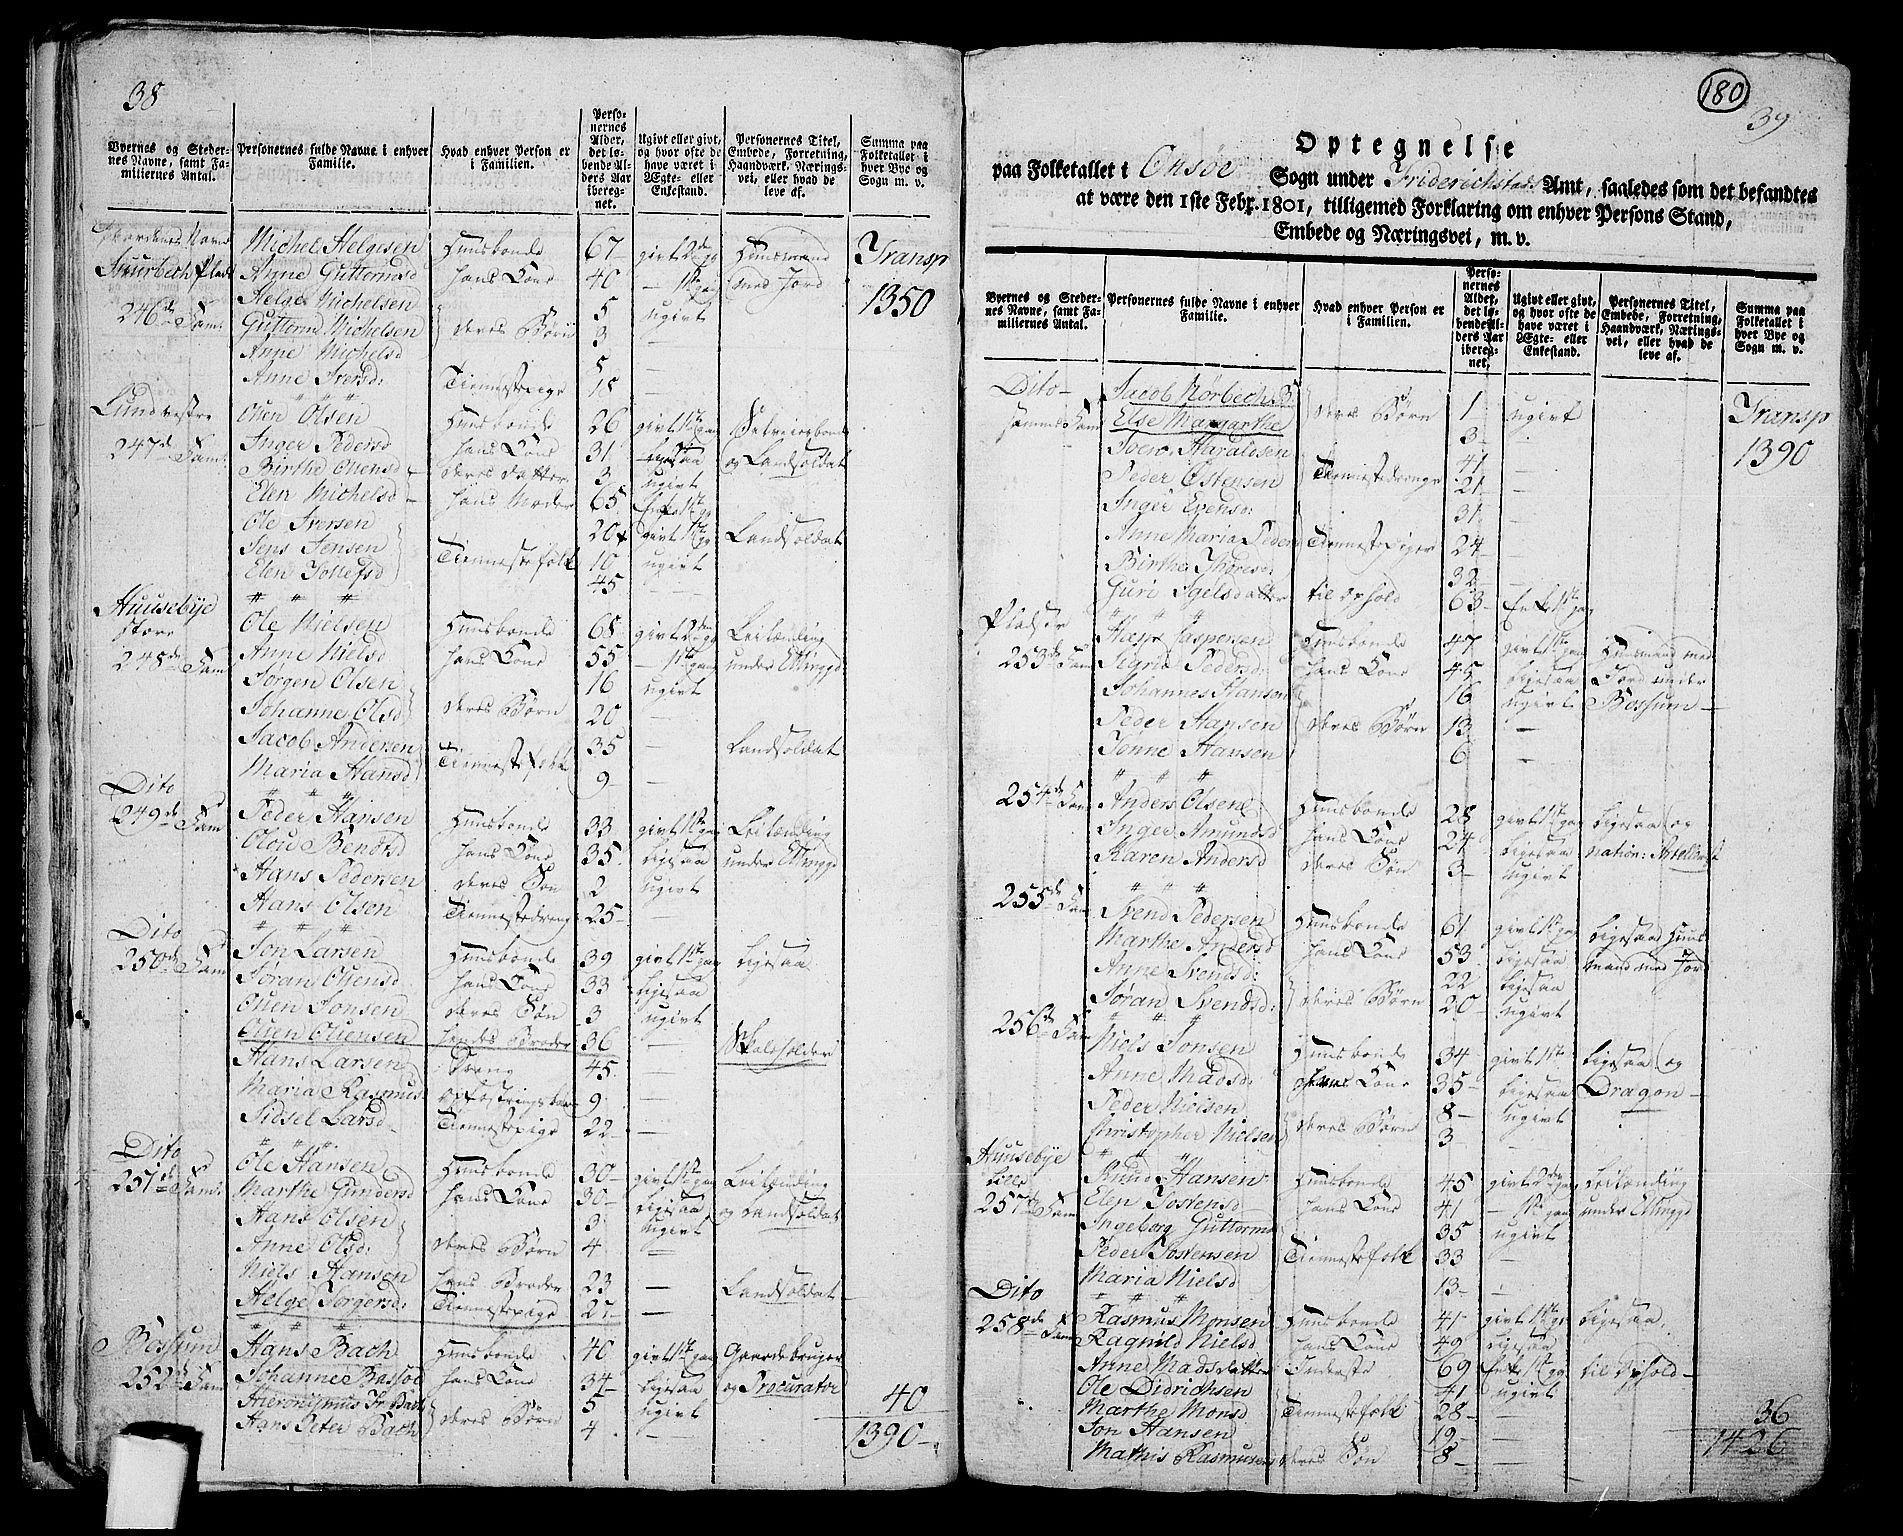 38
Byernes og Steder-
nes Navne, samt Fa-
miliernes Antal.
Personernes fulde Navne i enhver
Familie.
Hvad enhver Person er
i Familien.
Perso-
nernes
Alder,
det lø-
bende Al-
ders Aar
ibereg-
net.
Ugivt eller givt,
og hvor ofte de
have været i
Ægte- eller
Enkestand.
Personernes Titel,
Embede, Forretning,
Haandværk, Nærings-
vei, eller hvad de
leve af.
Summa paa
Folketallet i
hver Bye og
Sogn m. v.
Michel Helgesen Huusbonde 67 givt 2den gg Huusmand Transp
Anne Guttormsd hans Kone 40 — 1ste gg med Jord 1350
Helge Michelsen 5 ugivt
246de Fam. Guttorm Michelsen deres Børn 3 —
Anne Michelsd 5 —
Anne Iversd: Tienestepige 18 —
Lundvestre Olen Olsen Huusbonde 26 givt 1ste gang Selveierbonde
247de Fam: Inger Pedersd hans Kone 31 ligesaa og Landsoldat
Birthe Olensd deres datter 3 ugivt
Elen Michelsd hans Moder 65 Enke 1ste gg
Ole Iversen 20 givt 1ste gg Landsoldat
Jens Jensen Tienestefolk 10 ugivt
Elen Jottefsd 45
Huusebÿe
store
Ole Nielsen Huusbonde 68 givt 2den gg Leilænding
248de Fam Anne Nielsd hans Kone 55 — 1ste gang under Ellinggd
Jørgen Olsen 16 ugivt
Johanne Olsd deres Børn 20 —
Jacob Andersen 35 — Landsoldat
Maria Hansd Tienestefolk 9 —
Dito
249de Fam Peder Hansen Huusbonde 33 givt 1ste gang Leilænding
Oloie Bendtsd hans Kone 35 ligesaa under Ellinggd
Hans Pedersen deres Søn 2 ugivt
Hans Olsen Tienestedreng 25 —
Dito
250de Fam Jon Larsen Huusbonde 39 givt 1ste gang ligesaa
Søran Olensd hans Kone 33 ligesaa
Olen Jonsen deres Søn 3 ugivt
Olen Olensen hendes Broder 36 — Skoleholder
Hans Larsen Dreng 45 —
Maria Rasmusd opfostringsbarn 9 —
Sidsel Larsd Tienestepige 22 —
Dito
251de Fam: Ole Hansen Huusbonde 30 givt 1ste gang Leilænding
Marthe Gundersd hans Kone 30 ligesaa og Landsoldat
Hans Olsen 3 ugivt
Anne Olsd: deres Børn 4 —
Niels Hansen hans Broder 23 — Landsoldat
Helge Jørgensd: Tienestepige 25 —
Bossum Hans Bach Huusbonde 40 givt 1ste gang Gaardebruger
252de Fam Johanne Bassøe hans Kone 34 ligesaa og Procurator 40
Hieronÿmus Fr Bach 5 ugivt
Hans Peter Bach deres Børn 4 — 1390
180
39
Optegnelse
paa Folketallet i Onsøe Sogn under Friderichstads Amt, saaledes som det befandtes
at være den 1ste Febr. 1801, tilligemed Forklaring om enhver Persons Stand,
Embede og Næringsvei, m. v.
Byernes og Steder-
nes Navne, samt Fa-
miliernes Antal.
Personernes fulde Navne i enhver
Familie.
Hvad enhver Person er
i Familien.
Perso-
nernes
Alder,
det lø-
bende Al-
ders Aar
ibereg-
net.
Ugivt eller givt,
og hvor ofte de
have været i
Ægte- eller
Enkestand.
Personernes Titel,
Embede, Forretning,
Haandværk, Nærings-
vei, eller hvad de
leve af.
Summa paa
Folketallet i
hver Bye og
Sogn m. v.
Dito Jacob Nørbech B deres Børn 1 ugivt Transp
samme Fam Else Margarthe 3 1390
Soern Haraldsen 41 —
Peder Østensen Tienestedrenge 21 —
Inger Evensd: 31 —
Anne Maria Pedersd Tienestepiger 24 —
Birthe Thoresd: 32 —
Guri Igelsdatter til ophold 63 Enke 1ste gg
Pladser Hans Caspersen Huusbonde 47 givt 1ste gang Huusmand med
253de Fam Sigrid Pedersd: hans Kone 45 ligesaa Jord under
Johannes Hansen 16 ugivt Bossum
Peder Hansen deres Børn 13 —
Tonne Hansen 6 —
254de Fam Anders Olsen Huusbonde 28 givt 1ste gang ligesaa og
Inger Amundsd hans Kone 24 ligesaa nation: Artellerist
Karen Andersd deres Søn 3 ugivt
255de Fam Svend Pedersen Huusbonde 61 givt 1ste gang ligesaa Huus
Marthe Andersd hans Kone 53 ligesaa mand med Jord
Anne Svendsd: 22 ligesaa
Søran Svendsd: deres Børn 20 ugivt
256de Fam Niels Jonsen Huusbonde 34 givt 1ste ligesaa og
Anne Madsd: hans Kone 35 ligesaa Dragon
Peder Nielsen 8 ugivt
Christopher Nielsen deres Børn 3 —
Huusebÿe
Lille
Knud Hansen Huusbonde 45 givt 2den gang Leilænding
257de Fam Elen Jostensd hans Kone 41 — 1ste gang under Ellinggd
Ingeborg Guttormsd 35 ugivt
Peder Jostensen Tienestefolk 33
Maria Nielsd 13 —
Dito
258de Fam Rasmus Monsen Huusbonde 41 givt 1ste gang ligesaa
Ragnild Nielsd hans Kone 49 ligesaa
Anne Madsdatter Inderste 69 Enke 1ste gg til Ophold
Ole Didrichsen 41 ugivt
Marthe Monsd Tienestefolk 28 — 36
Jon Hansen 19 — 1426
Mathis Rasmusen deres Søn 8 —